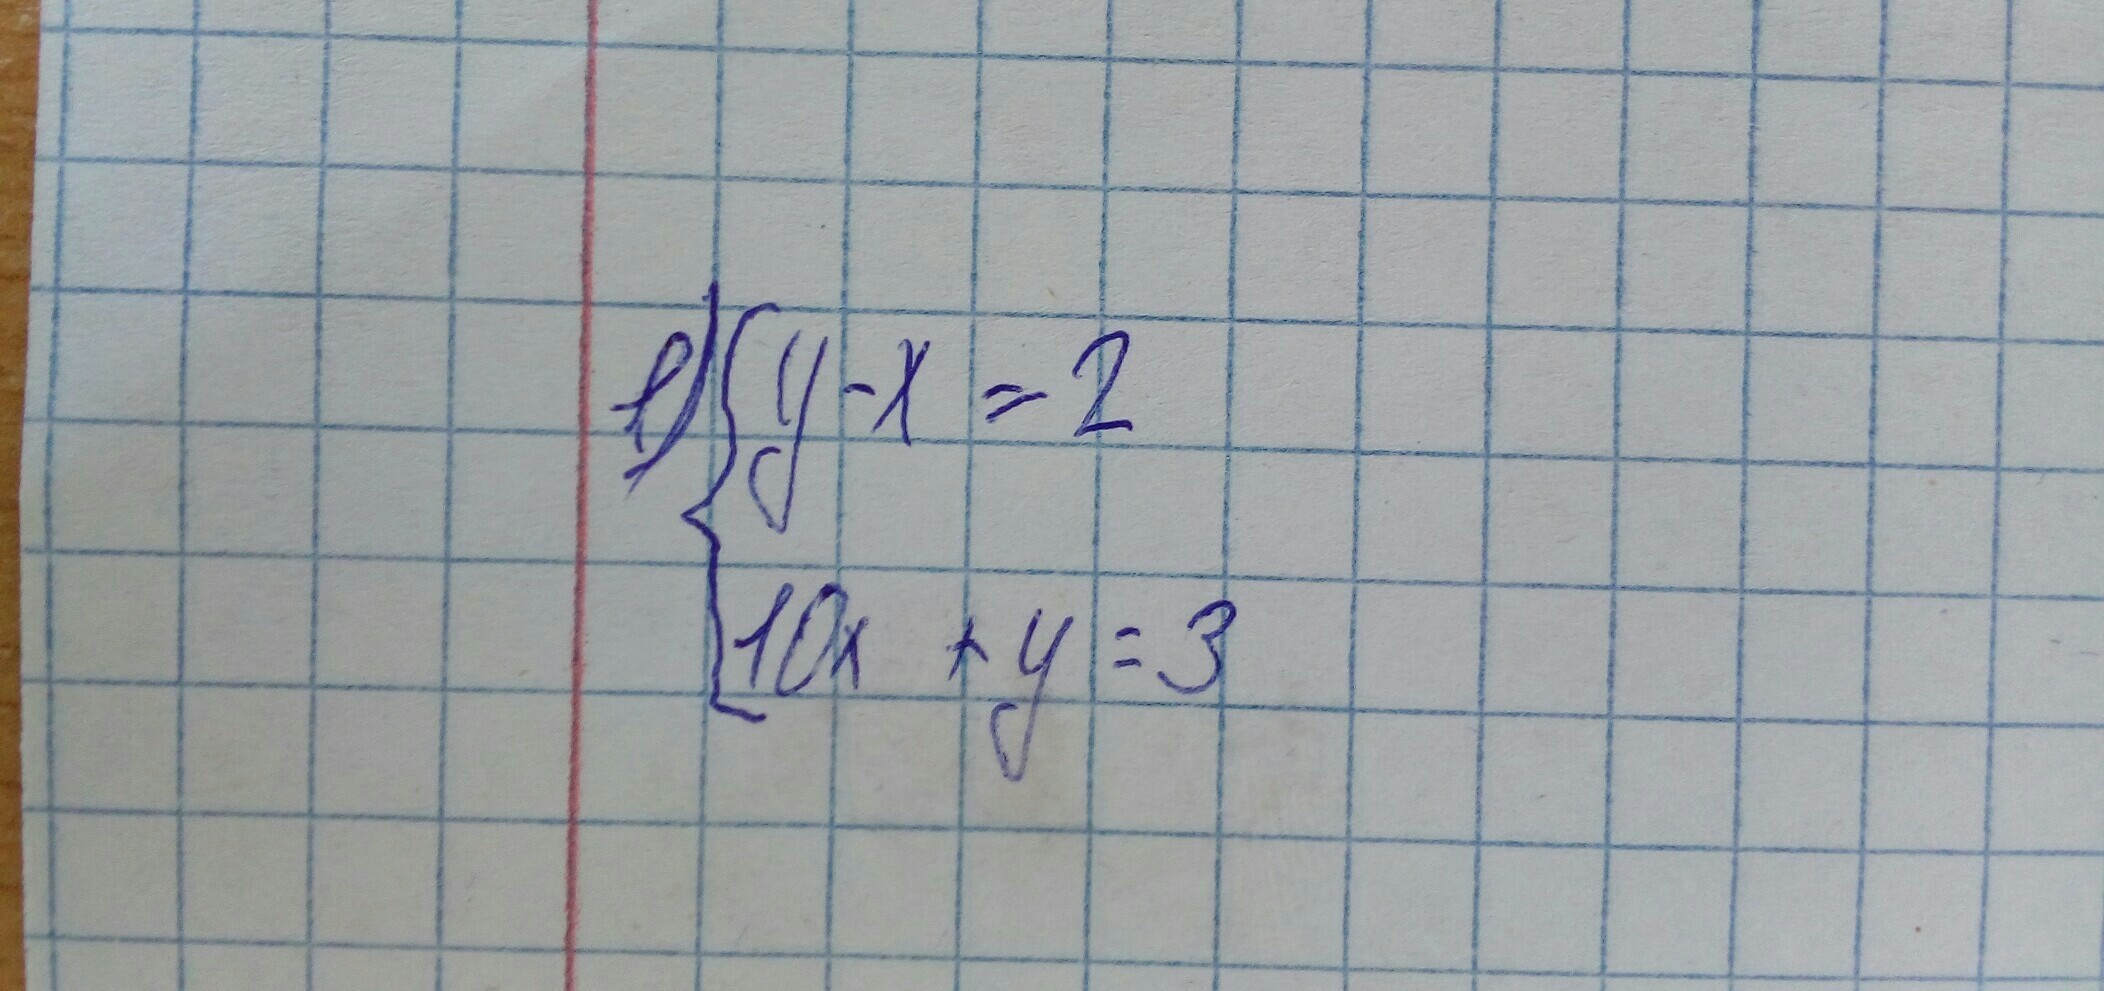 1) { y - x = 2
10x + y = 3